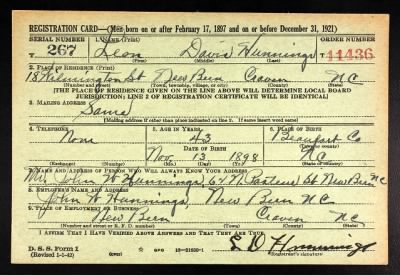 REGISTRATION CARD—(Men born on or after February 17, 1897 and on or before December 31, 1921)
SERIAL NUMBER 1. NAME (Print) ORDER NUMBER
T 267 Leon Davis Hunnings T 11436
(First) (Middle) (Last)
2. PLACE OF RESIDENCE (Print)
18 St New Bern Craven NC
(Number and street) (Town, township, village, or city) (County) (State)
[THE PLACE OF RESIDENCE GIVEN ON THE LINE ABOVE WILL DETERMINE LOCAL BOARD
JURISDICTION; LINE 2 OF REGISTRATION CERTIFICATE WILL BE IDENTICAL]
3. MAILING ADDRESS
Same
[Mailing address if other than place indicated on line 2. If same insert word same]
4. TELEPHONE 5. AGE IN YEARS 6. PLACE OF BIRTH
None 43 Beaufort Co
DATE OF BIRTH (Town or county)
Nov 13 1898 NC
(Exchange) (Number) (Mo.) (Day) (Yr.) (State or country)
7. NAME AND ADDRESS OF PERSON WHO WILL ALWAYS KNOW YOUR ADDRESS
Mr John W Hunnings, 64 N. Pasteur St New Bern NC
8. EMPLOYER'S NAME AND ADDRESS
John W Hunnings, New Bern NC
9. PLACE OF EMPLOYMENT OR BUSINESS
New Bern Craven NC
(Number and street or R. F. D. number) (Town) (County) (State)
I AFFIRM THAT I HAVE VERIFIED ABOVE ANSWERS AND THAT THEY ARE TRUE.
D. S. S. Form 1
(Revised 1-1-42) GPO 16—21630-1
L. D. Hunnings
(Registrant's signature)